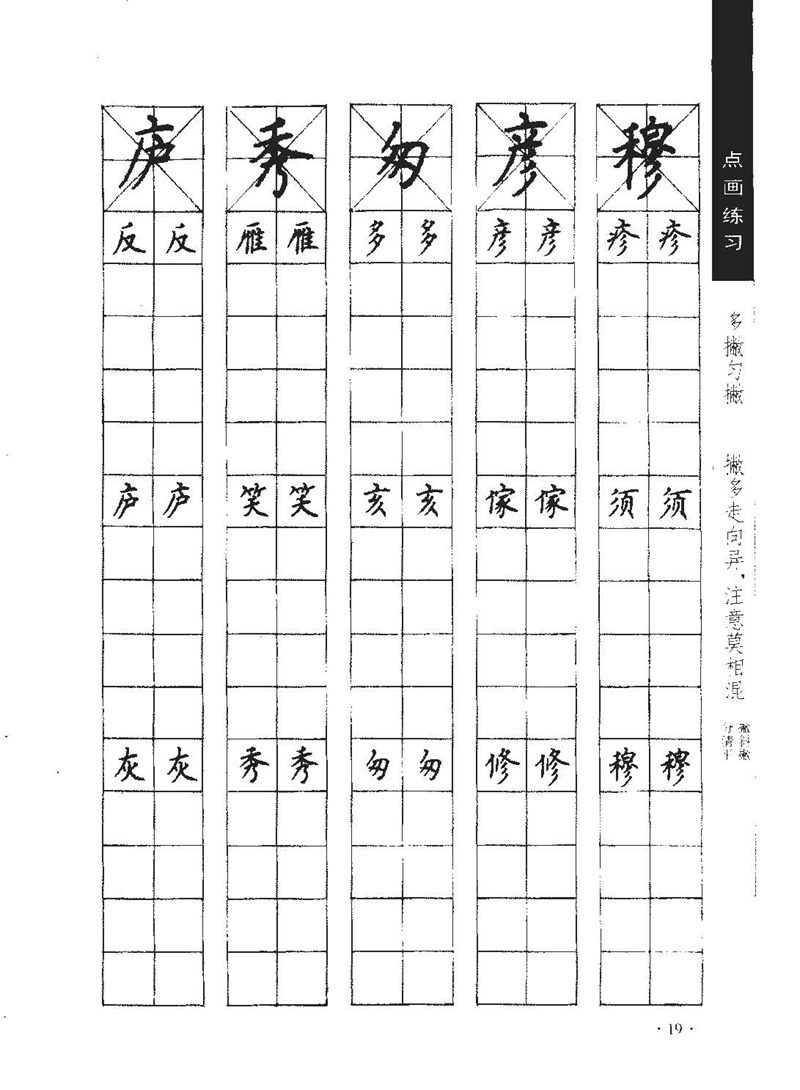 点画练习
多撇匀撇
撇多走向异,注意莫相混
穆
疹 疹
须 须
穆 穆
彦
彦 彦
傢 傢
修 修
匆
多 多
亥 亥
匆 匆
秀
雁 雁
笑 笑
秀 秀
庐
反 反
庐 庐
灰 灰
·19·